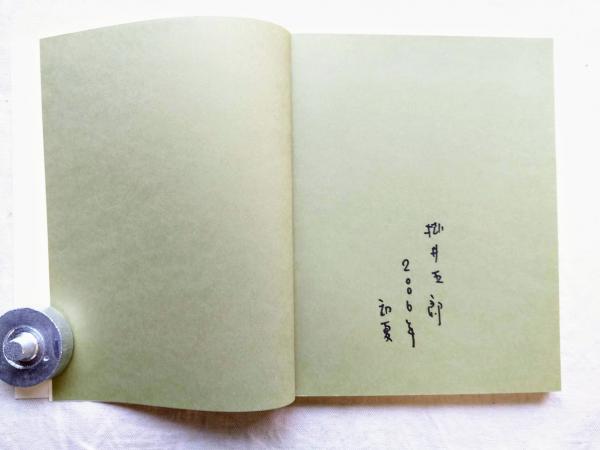 井五郎
2006年
初夏